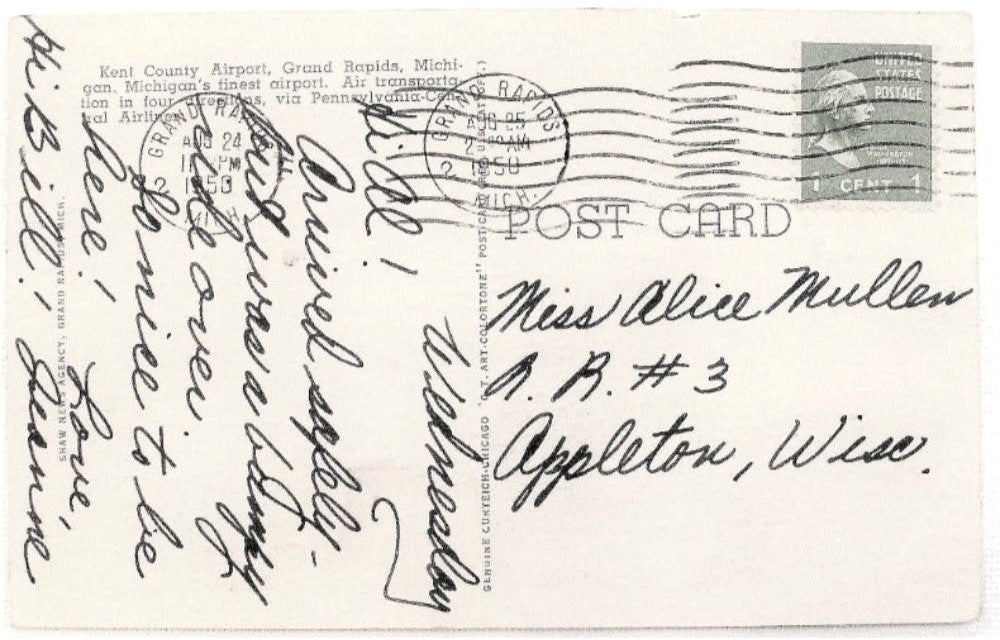 Kent County Airport, Grand Rapids, Michi-
gan. Michigan's finest airport. Air transporta-
tion in four directions, via Pennsylvania-Cen-
tral Airlines.
GRAND RAPIDS
AUG 24
PM
1950
2
MICH
GRAND RAPIDS
AUG 25
2 AM
1950
2
MICH
UNITED
STATES
POSTAGE
1 CENT 1
POST CARD
Wednesday
Hi Al!
Arrived safely -
but was a bumpy
ride over.
So nice to be
here!
Love,
Jeanne
Hi Bill!
Miss Alice Mullen
R. R. #3
Appleton, Wisc.
SHAW NEWS AGENCY, GRAND RAPIDS, MICH.
GENUINE CURTEICH-CHICAGO "C. T. ART-COLORTONE" POST CARD